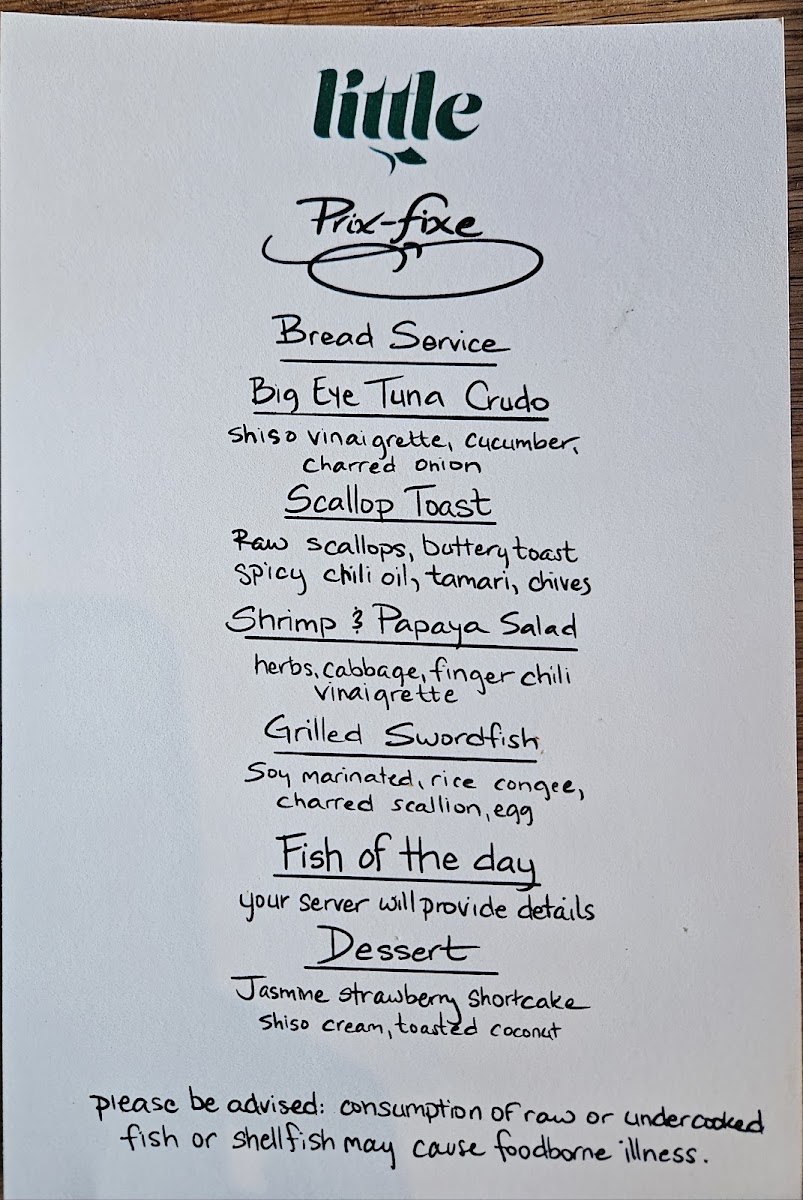 little
Prix-fixe
Bread Service
Big Eye Tuna Crudo
Shiso vinaigrette, cucumber,
charred onion
Scallop Toast
Raw scallops, buttery toast
spicy chili oil, tamari, chives
Shrimp & Papaya Salad
herbs, cabbage, finger chili
vinaigrette
Grilled Swordfish
Soy marinated, rice congee,
charred scallion, egg
Fish of the day
your server will provide details
Dessert
Jasmine strawberry shortcake
shiso cream, toasted coconut
please be advised: consumption of raw or undercooked
fish or shellfish may cause foodborne illness.